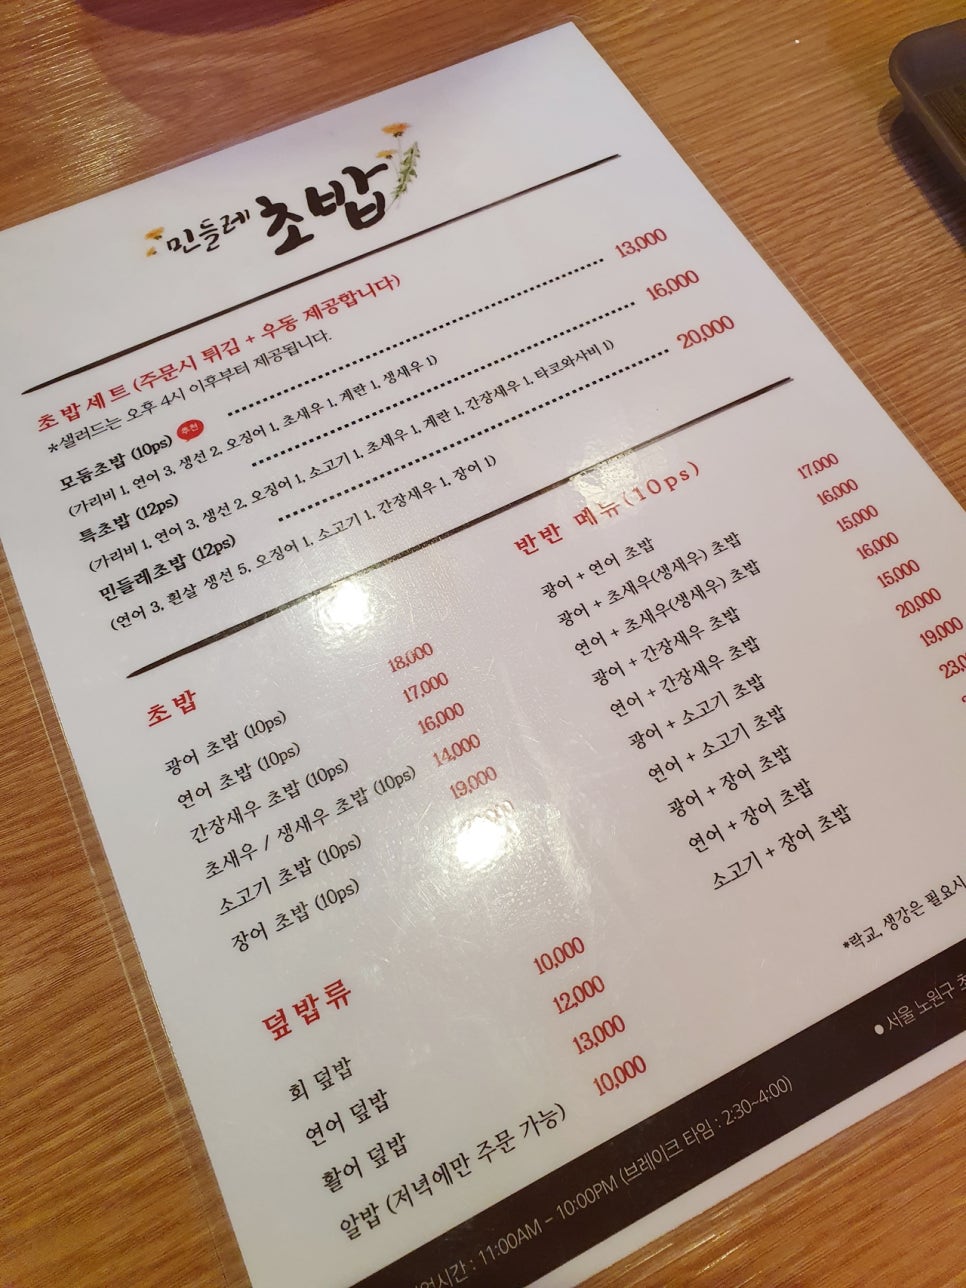 민들레 초밥
초밥세트 (주문시 튀김 + 우동 제공합니다)
*샐러드는 오후 4시 이후부터 제공됩니다.
모둠초밥 (10ps) 추천 13,000
(가리비 1, 연어 3, 생선 2, 오징어 1, 초새우 1, 계란 1, 생새우 1)
특초밥 (12ps) 16,000
(가리비 1, 연어 3, 생선 2, 오징어 1, 소고기 1, 초새우 1, 계란 1, 간장새우 1, 타코와사비 1)
민들레초밥 (12ps) 20,000
(연어 3, 흰살 생선 5, 오징어 1, 소고기 1, 간장새우 1, 장어 1)
초밥
광어 초밥 (10ps) 18,000
연어 초밥 (10ps) 17,000
간장새우 초밥 (10ps) 16,000
초새우 / 생새우 초밥 (10ps) 14,000
소고기 초밥 (10ps) 19,000
장어 초밥 (10ps)
반반 메뉴(10ps)
광어 + 연어 초밥 17,000
광어 + 초새우(생새우) 초밥 16,000
연어 + 초새우(생새우) 초밥 15,000
광어 + 간장새우 초밥 16,000
연어 + 간장새우 초밥 15,000
광어 + 소고기 초밥 20,000
연어 + 소고기 초밥 19,000
광어 + 장어 초밥
연어 + 장어 초밥
소고기 + 장어 초밥
*락교, 생강은 필요시
덮밥류
회 덮밥 10,000
연어 덮밥 12,000
활어 덮밥 13,000
알밥 (저녁에만 주문 가능) 10,000
● 서울 노원구
: 11:00AM - 10:00PM (브레이크 타임 : 2:30~4:00)